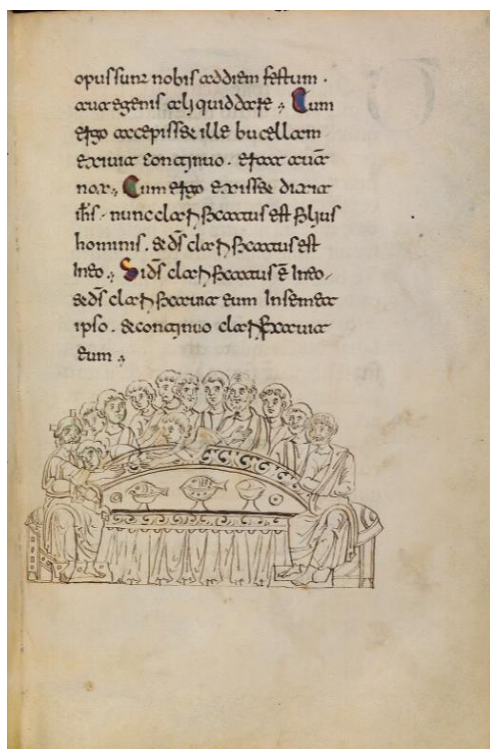 opus sunt nobis ad diem festum ·
aut egenis aliquid daret ; Cum
ergo accepisset ille bucellam
exiuit continuo . erat autē
nox ; Cum ergo exisset dicit
ih̄s . nunc clarificatus est filius
hominis . & d̄s clarificatus est
in eo ; Si d̄s clarificatus ē in eo .
& d̄s clarificauit eum in semet
ipso . & continuo clarificauit
eum ;